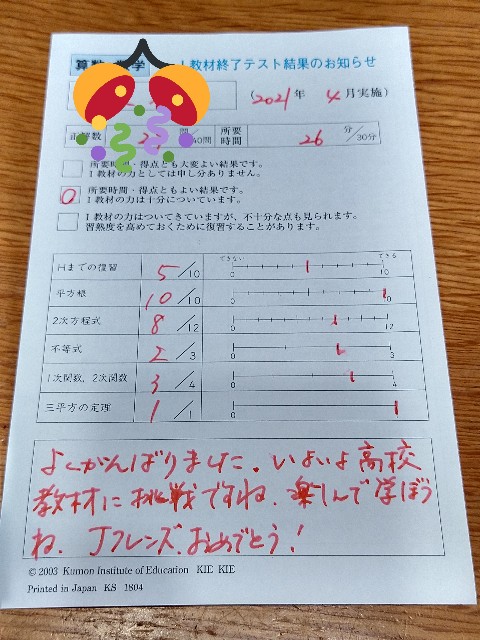 算数 数学 I教材終了テスト結果のお知らせ
(2021年 4月実施)
正解数 2 問/40問 所要時間 26 分/30分
所要時間・得点とも大変よい結果です。
I教材の力としては申し分ありません。
○ 所要時間・得点ともよい結果です。
I教材の力は十分についています。
I教材の力はついてきていますが、不十分な点も見られます。
習熟度を高めておくために復習することがあります。
できない できる
Hまでの復習 5/10 0 10
平方根 10/10 0 10
2次方程式 8/12 0 12
不等式 2/3 0 3
1次関数, 2次関数 3/4 0 4
三平方の定理 1/1 0 1
よくがんばりました。いよいよ高校
教材に挑戦ですね。楽しんで学ぼう
ね。Jフレンズ、おめでとう!
© 2003 Kumon Institute of Education KIE KIE
Printed in Japan KS 1804